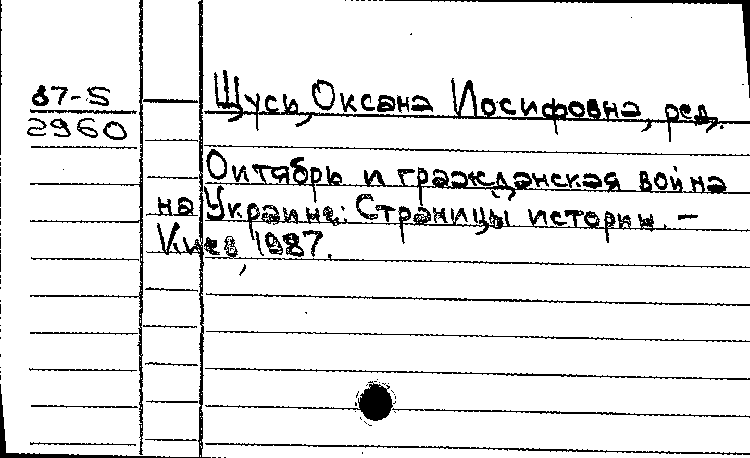 87-5
2960
Щусь, Оксана Иосифовна, ред.
Октябрь и гражданская война
на Украине: Страницы истории. –
Киев, 1987.